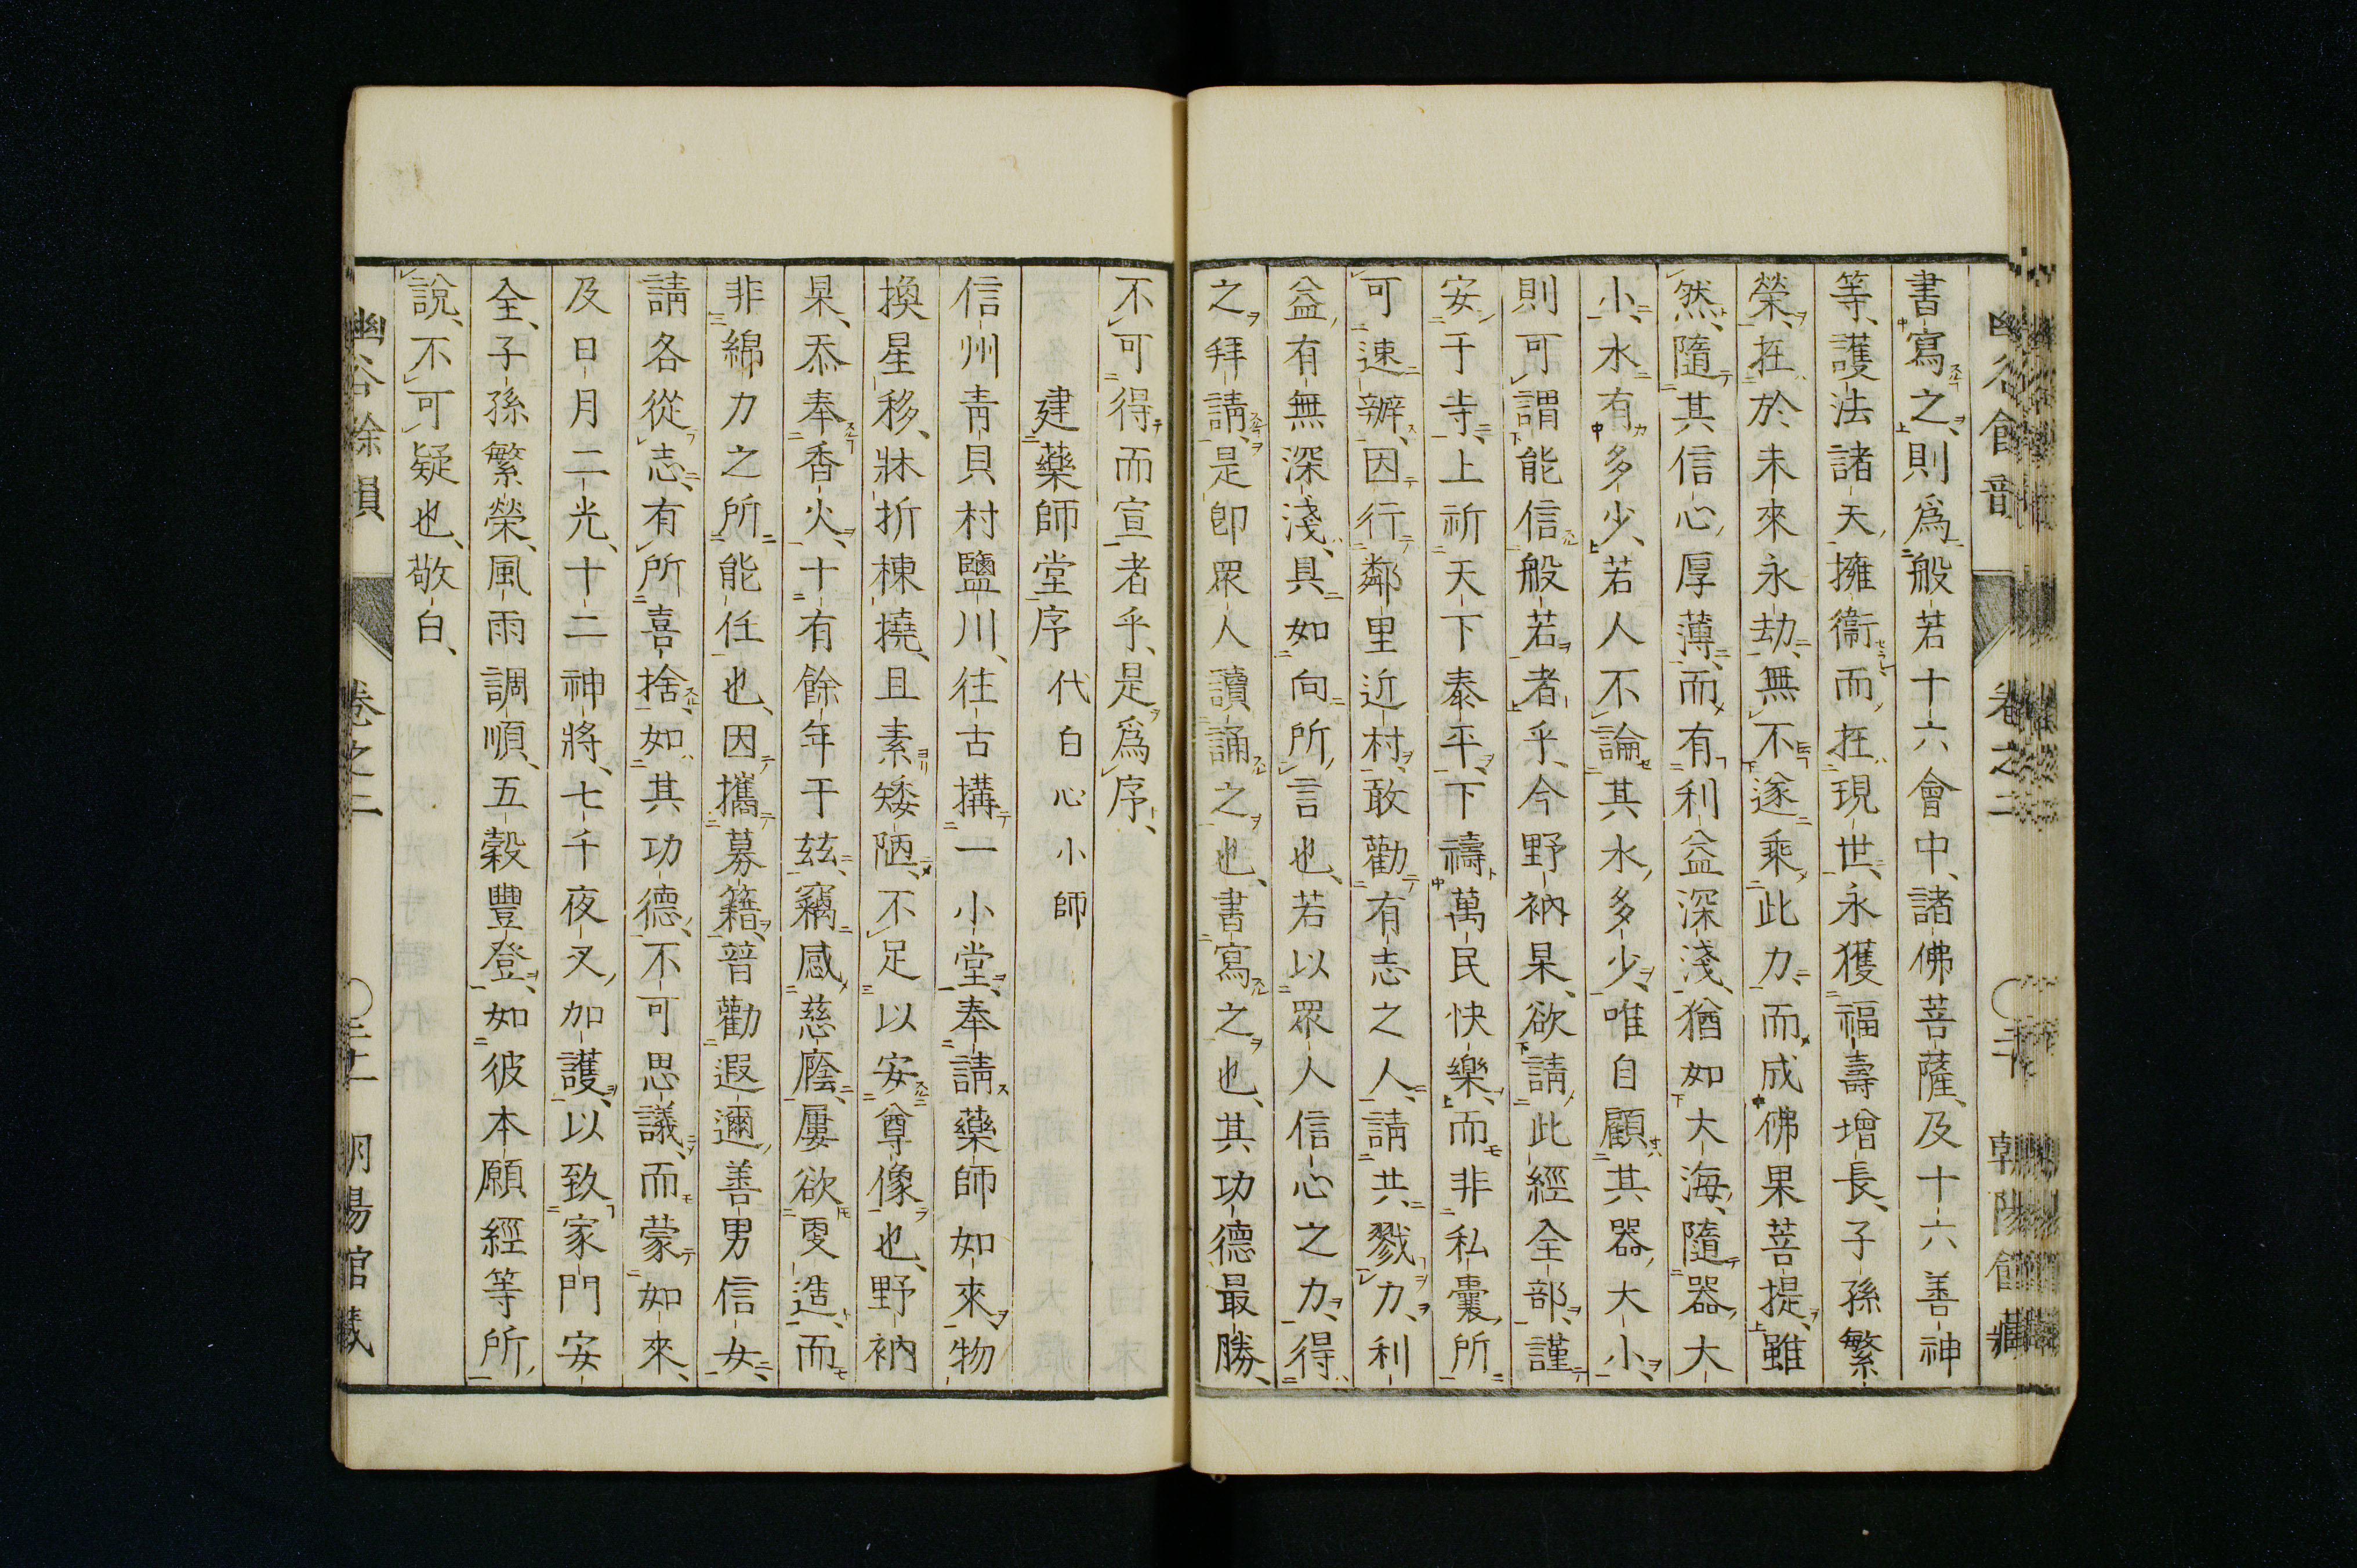 書寫之、則爲般若十六會中、諸佛菩薩、及十六善神
等、護法諸天、擁衞而在現世、永獲福壽增長、子孫繁
榮、在於未來永劫、無不遂乘此力、而成佛果菩提、雖
然、隨其信心、厚薄、而有利益深淺、猶如大海、隨器大
小、水有多少、若人不論其水、多少、唯自顧其器、大小、
則可謂能信般若者乎、今野衲杲、欲請此經全部、謹
安于寺、上祈天下泰平、下禱萬民快樂、而非私囊、所
可速辦、因行鄰里近村、敢勸有志之人、請共、戮力、利
益、有無深淺、具如向所言也、若以眾人信心之力、得
之拜請、是卽眾人讀誦之也、書寫之也、其功德最勝、
不可得而宣者乎、是爲序、
建藥師堂序 代白心小師
信州靑貝村鹽川、往古搆一小堂、奉請藥師如來、物
換星移、牀折棟撓、且素矮陋、不足以安尊像也、野衲
杲、忝奉香火、十有餘年于茲、竊感慈廕、屢欲更造、而
非綿力之所能任也、因攜募籍、普勸遐邇、善男信女、
請各從志、有所喜捨、如其功德、不可思議、而蒙如來、
及日月二光、十二神將、七千夜叉、加護、以致家門安
全、子孫繁榮、風雨調順、五穀豐登、如彼本願經等所
說、不可疑也、敬白、
幽谷餘韻 卷之二 〇二十一 朝陽館藏